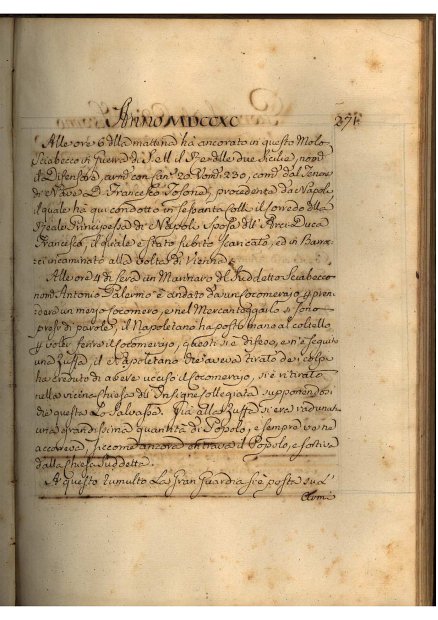 Anno MDCCXC
271.
Alle ore 6 della mattina há ancorato in questo Molo
Sciabecco in Guerra di S. M. il Re delle due Sicilie, nom.
il Difensore, arm. con Can. 20 e Uom. 230, com. dal Tenen.
di Nave D. Francesco Tosone, procedente da Napoli
il quale ha qui condotto in Sessanta Colli il Corredo della
Reale Principessa di Napoli Sposa dell' Arci-Duca
Francesco, il quale è stato subito scaricato, ed in Barroc
ci incaminato alla volta di Vienna.
Alle ore 4 di sera un Marinaro del Suddetto Sciabecco
nom. Antonio Palermo è andato da un Cocomerajo p pren
dere un mezzo Cocomero, e nel Mercanteggiarlo si sono
presi di parole, il Napoletano ha posto mano al coltello
4 volte ferire il Cocomerajo, questi si è difeso, e n'è seguito
una Ruffa. il Napoletano che aveva tirato dei colpi
ha creduto di avere ucciso il Cocomerajo, si è ritirato
nella vicina Chiesa dell' Insigne Collegiata supponendosi
che questa Lo Salvasse. Già alla Ruffa si era radunata
una grandissima quantità di Popolo, e sempre ve ne
accorreva, siccome ancora entrava il Popolo, e sortiva
dalla Chiesa Suddetta.
A questo tumulto La Gran Guardia si è posta su l'
Armi